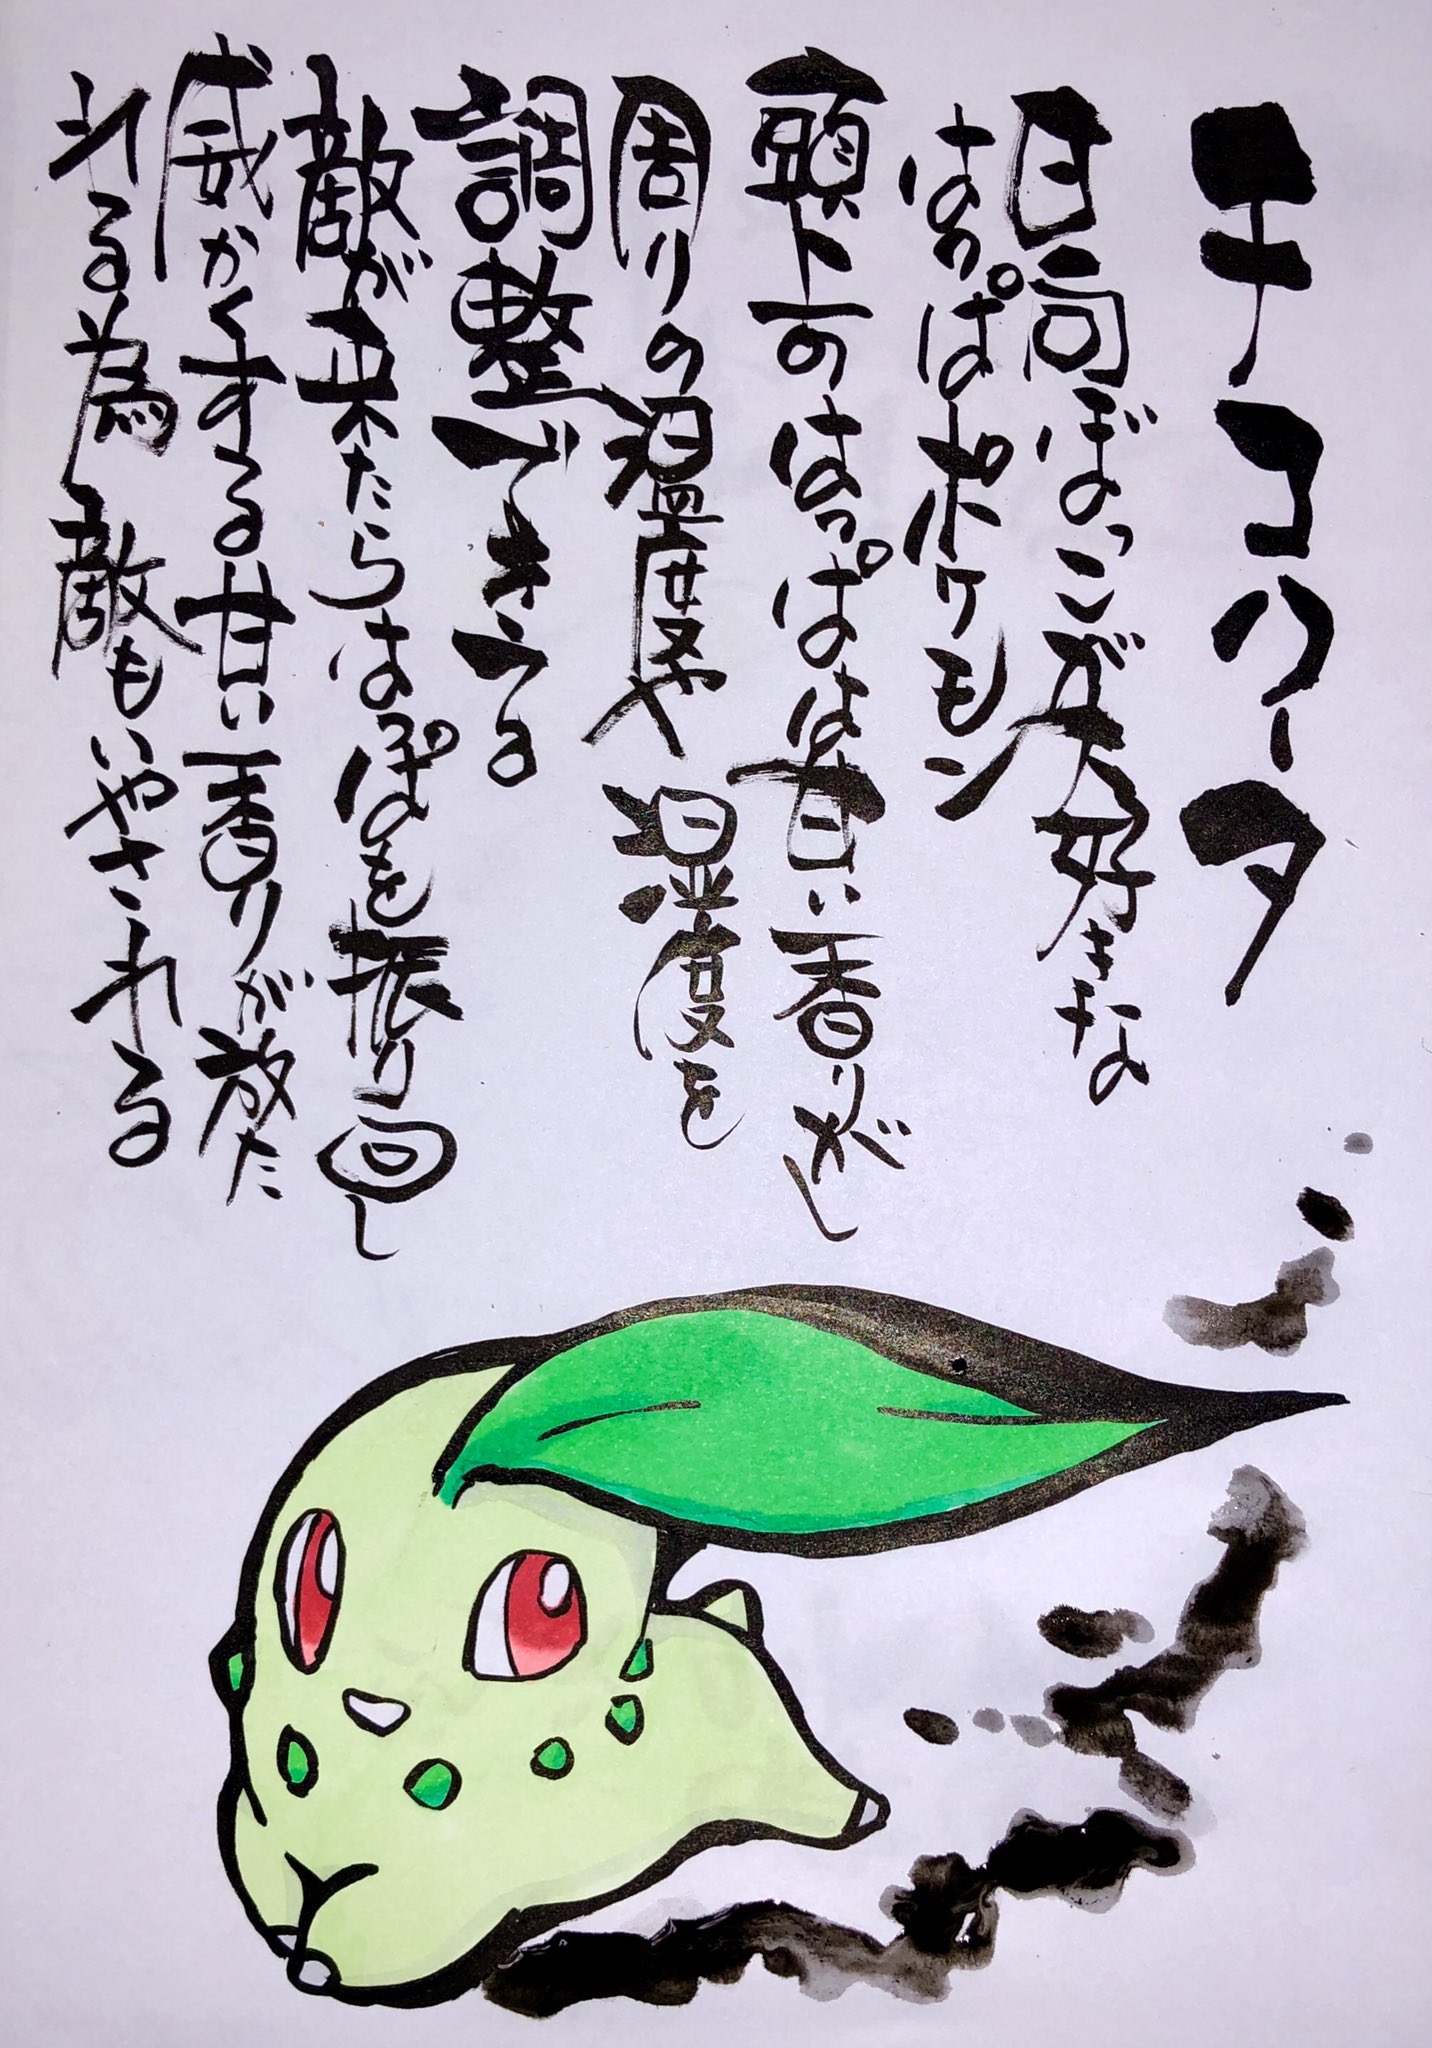 チコリータ
日向ぼっこが大好きな
はっぱポケモン
頭上のはっぱは甘い香りがし
周りの温度や湿度を
調整できる
敵が来たらはっぱを振り回し
威かくする甘い香りが放た
れる為敵もいやされる